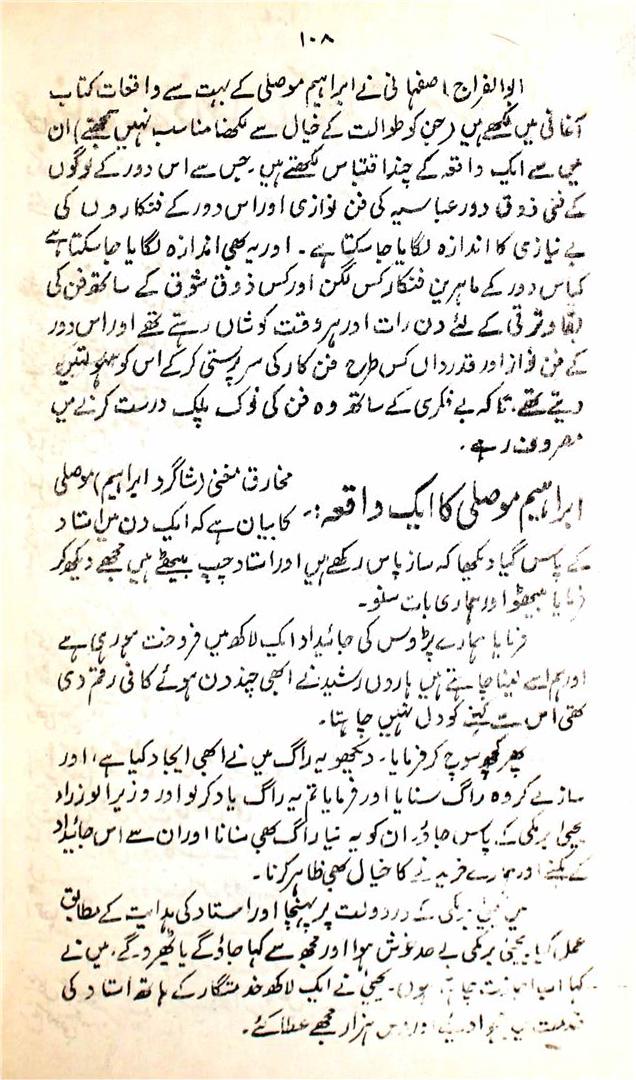 ۱۰۸
ابوالفراج اصفہانی نے ابراہیم موصلی کے بہت سے واقعات کتاب
آغانی میں لکھے ہیں (جن کو طوالت کے خیال سے لکھنا مناسب نہیں سمجھتے) ان
میں سے ایک واقعہ کے چند اقتباس لکھتے ہیں۔ جس سے اس دور کے لوگوں
کے فنی ذوق دور عباسیہ کی فن نوازی اور اس دور کے فنکاروں کی
بے نیازی کا اندازہ لگایا جا سکتا ہے۔ اور یہ بھی اندازہ لگایا جا سکتا ہے
کہ اس دور کے ماہرین فنکار کس لگن اور کس ذوق شوق کے ساتھ فن کی
بقا و ترقی کے لئے دن رات اور ہر وقت کوشاں رہتے تھے اور اس دور
کے فن نواز اور قدرداں کس طرح فن کار کی سرپرستی کر کے اس کو سہولتیں
دیتے تھے۔ تاکہ بے فکری کے ساتھ وہ فن کی نوک پلک درست کرنے میں
مصروف رہے۔
ابراہیم موصلی کا ایک واقعہ:۔ مخارق مغنی (شاگرد ابراہیم) موصلی
کا بیان ہے کہ ایک دن میں استاد
کے پاس گیا دیکھا کہ ساز پاس رکھے ہیں اور استاد چپ بیٹھے ہیں مجھے دیکھ کر
فرمایا بیٹھو اور ہماری بات سنو۔
فرمایا ہمارے پڑوس کی جائیداد ایک لاکھ میں فروخت ہو رہی ہے
اور ہم اسے لینا چاہتے ہیں ہاروں رشید نے ابھی چند دن ہوئے کافی رقم دی
تھی اس سے لینے کو دل نہیں چاہتا۔
پھر کچھ سوچ کر فرمایا۔ دیکھو یہ راگ میں نے ابھی ایجاد کیا ہے، اور
ساز لے کر وہ راگ سنایا اور فرمایا تم یہ راگ یاد کر لو اور وزیر الوزراء
یحیٰی برمکی کے پاس جاؤ، ان کو یہ نیا راگ بھی سنانا اور ان سے اس جائیداد
کے بکنے اور ہمارے خریدنے کا خیال بھی ظاہر کرنا۔
میں یحیٰی برمکی کے در دولت پر پہنچا اور استاد کی ہدایت کے مطابق
عمل کیا۔ یحیٰی برمکی بے حد خوش ہوا اور مجھ سے کہا جاؤ گے یا ٹھہرو گے، میں نے
کہا اب اجازت چاہتا ہوں۔ یحیٰی نے ایک لاکھ خدمتگار کے ہاتھ استاد کی
خدمت میں بھجوا دیئے اور دس ہزار مجھے عطا کئے۔